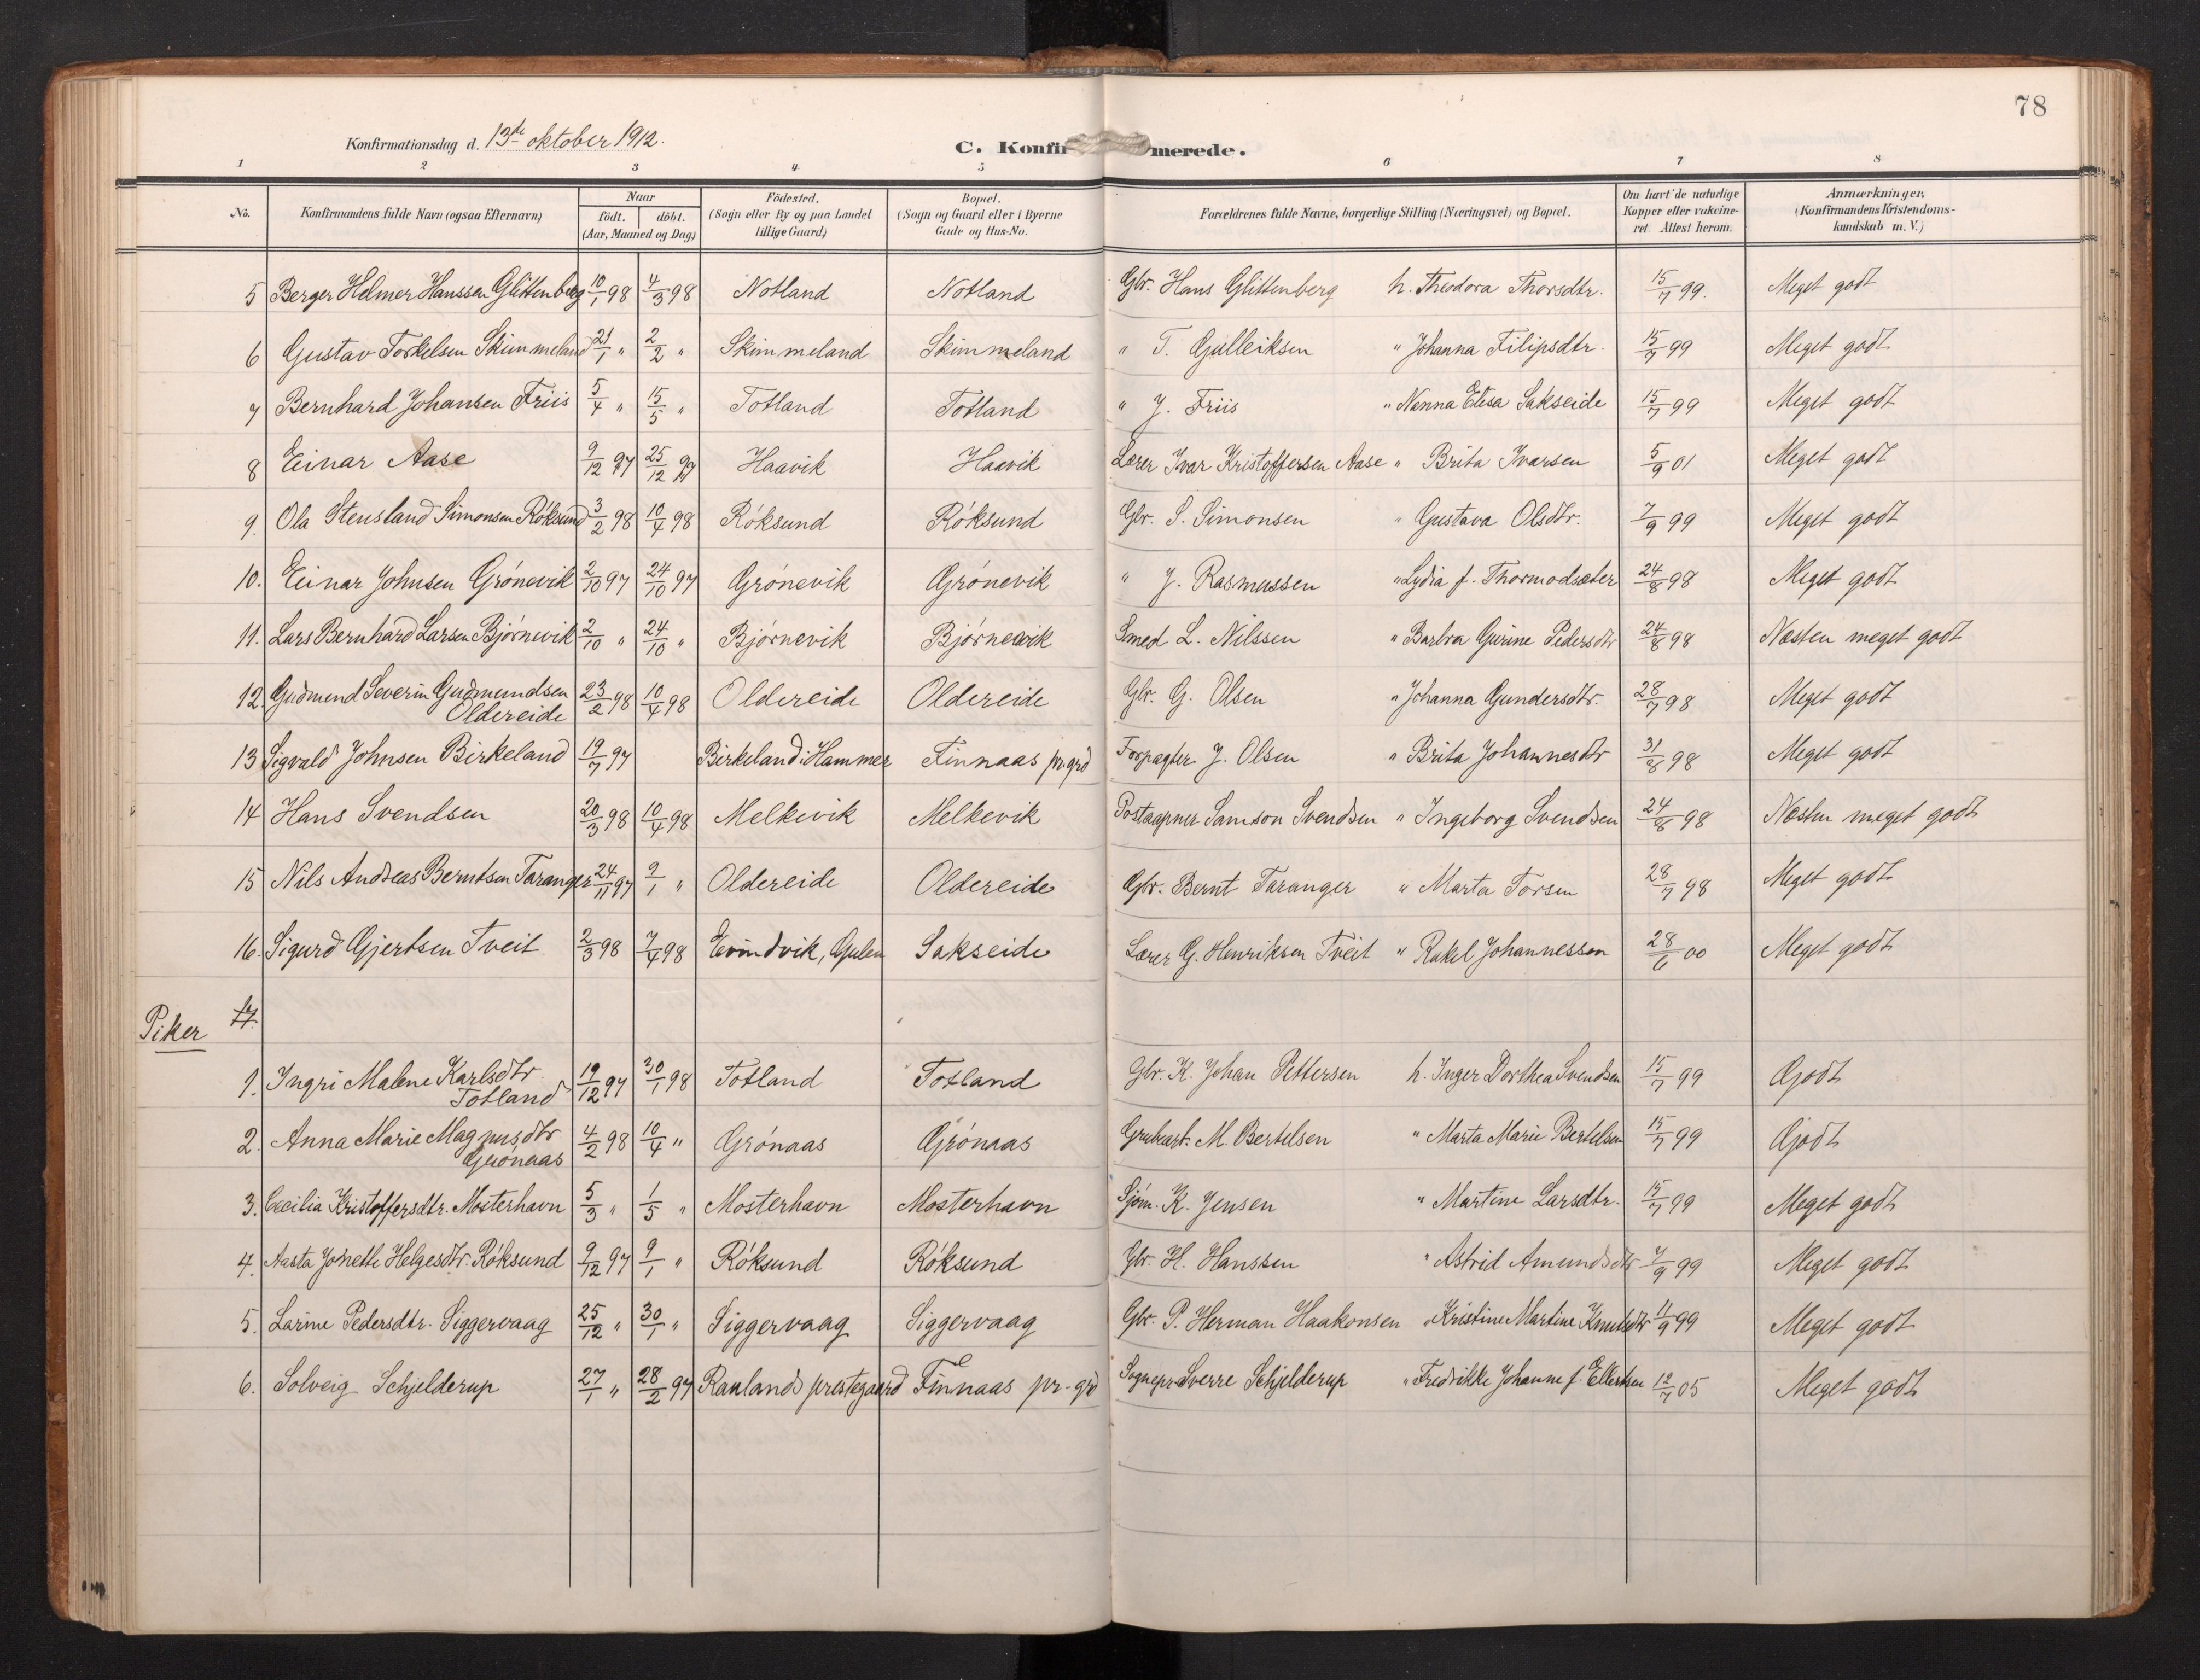 78
Konfirmationsdag d. 13de oktober 1912.
C. Konfir merede.
1 2 3 4 5 6 7 8
No. Konfirmandens fulde Navn (ogsaa Efternavn) Naar födt. döbt. (Aar, Maaned og Dag) Födested. (Sogn eller By og paa Landet tillige Gaard) Bopæl. (Sogn og Gaard eller i Byerne Gade og Hus-No. Forældrenes fulde Navne, borgerlige Stilling (Næringsvei) og Bopæl. Om havt de naturlige Kopper eller vakcineret Attest herom. Anmærkninger. (Konfirmandens Kristendomskundskab m. V.)
5 Berger Helmer Hanssen Glittenberg 10/1 98 4/3 98 Notland Notland Gbr. Hans Glittenberg h. Theodora Thorsdtr. 15/7 99. Meget godt
6 Gustav Torkelsen Skimmeland 21/1 " 2/2 " Skimmeland Skimmeland " T. Gulleiksen " Johanna Filipsdtr. 15/7 99 Meget godt
7 Bernhard Johansen Friis 5/4 " 15/5 " Totland Totland " J. Friis " Nanna Elesa Sakseide 15/7 99 Meget godt
8 Einar Aase 9/12 97 25/12 97 Haavik Haavik Lærer Ivar Kristoffersen Aase " Brita Ivarsen 5/9 01 Meget godt
9. Ola Stensland Simonsen Røksund 3/2 98 10/4 98 Røksund Røksund Gbr. S. Simonsen " Gustava Olsdtr. 7/9 99 Meget godt
10. Einar Johnsen Grønevik 2/10 97 24/10 97 Grønevik Grønevik " J. Rasmussen " Lydia f. Thormodsæter 24/8 98 Meget godt
11. Lars Bernhard Larsen Bjørnevik 2/10 " 24/10 " Bjørnevik Bjørnevik Smed L. Nilssen " Barbra Gurine Pedersdtr 24/8 98 Næsten meget godt
12. Gudmund Severin Gudmundsen Oldereide 23/2 98 10/4 98 Oldereide Oldereide Gbr. G. Olsen " Johanna Gundersdtr. 28/7 98 Meget godt
13 Sigvald Johnsen Birkeland 19/7 97 Birkeland i Hammer Finnaas pr.grd Forpagter J. Olsen " Brita Johannesdtr 31/8 98 Meget godt
14 Hans Svendsen 20/3 98 10/4 98 Melkevik Melkevik Postaapner Samson Svendsen " Ingeborg Svendsen 24/8 98 Næsten meget godt
15 Nils Andreas Berntsen Taranger 24/11 97 9/1 " Oldereide Oldereide Gbr. Bernt Taranger " Marta Torsen 28/7 98 Meget godt
16. Sigurd Gjertsen Tveit 2/3 98 7/4 98 Evindvik, Gulen Sakseide Lærer G. Henriksen Tveit " Rakel Johannesson 28/6 00 Meget godt
Piker 17.
1. Ingri Malene Karlsdtr. Totland 19/12 97 30/1 98 Totland Totland Gbr. K. Johan Pettersen h. Inger Dorthea Svendsen 15/7 99 Godt
2. Anna Marie Magnusdtr Grønaas 4/2 98 10/4 " Grønaas Grønaas Grubearb. M. Bertelsen " Marta Marie Bertelsen 15/7 99 Godt
3. Cecilia Kristoffersdtr. Mosterhavn 5/3 " 1/5 " Mosterhavn Mosterhavn Sjøm. K. Jensen " Martine Larsdtr. 15/7 99 Meget godt
4. Aasta Jonette Helgesdtr. Røksund 9/12 97 9/1 " Røksund Røksund Gbr. H. Hanssen " Astrid Amundsdtr 7/9 99 Meget godt
5. Larine Pedersdtr. Siggervaag 25/12 " 30/1 " Siggervaag Siggervaag Gbr. P. Herman Haakonsen " Kristine Martine Knutsdtr 11/9 99 Meget godt
6. Solveig Schjelderup 27/1 " 28/2 97 Raulands prestegaard Finnaas pr. grd Sognepr. Sverre Schjelderup " Fredrikke Johanne f. Ellertsen 12/7 05 Meget godt